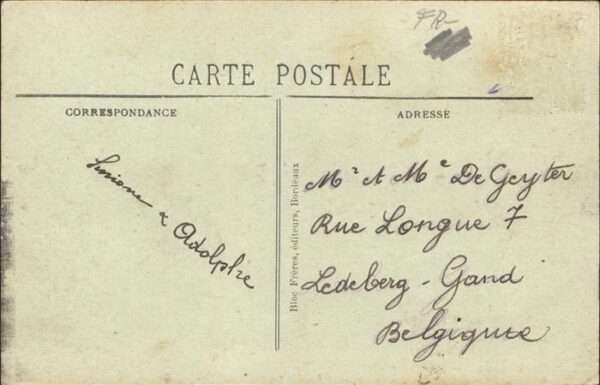 FR-
CARTE POSTALE
CORRESPONDANCE
ADRESSE
Simone
& Adolphe
Bloc Frères, éditeurs, Bordeaux
Mr et Me De Geyter
Rue Longue 7
Ledeberg - Gand
Belgique